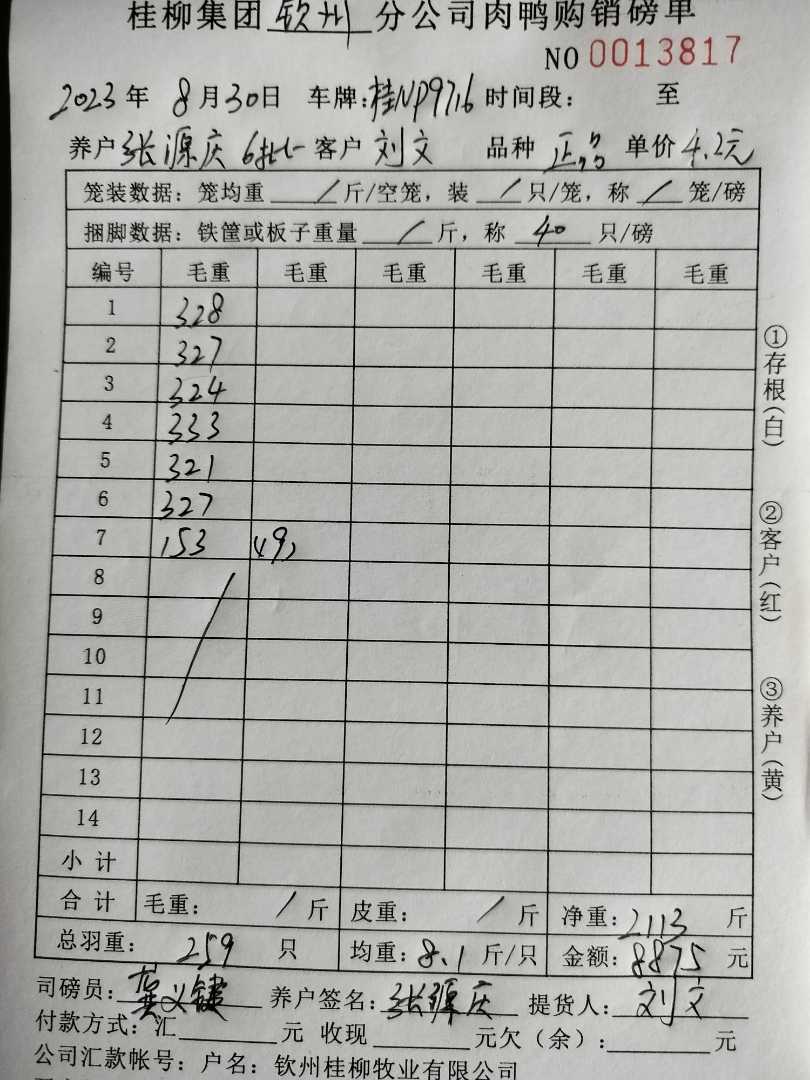 桂柳集团 钦州 分公司肉鸭购销磅单
NO 0013817
2023年 8月30日 车牌:桂NP9716 时间段: 至
养户 张源庆 6批 客户 刘文 品种 正品 单价 4.2元
笼装数据:笼均重 / 斤/空笼,装 / 只/笼,称 / 笼/磅
捆脚数据:铁筐或板子重量 / 斤,称 40 只/磅
编号 毛重 毛重 毛重 毛重 毛重 毛重
1 328
2 327
3 324
4 333
5 321
6 327
7 153 (19)
8
9
10
11
12
13
14
小计
合计 毛重: / 斤 皮重: / 斤 净重:2113 斤
总羽重: 259 只 均重:8.1 斤/只 金额:8875 元
司磅员: 义键 养户签名:张源庆 提货人:刘文
付款方式:汇 元 收现 元欠(余): 元
公司汇款帐号:户名:钦州桂柳牧业有限公司
①存根(白)
②客户(红)
③养户(黄)